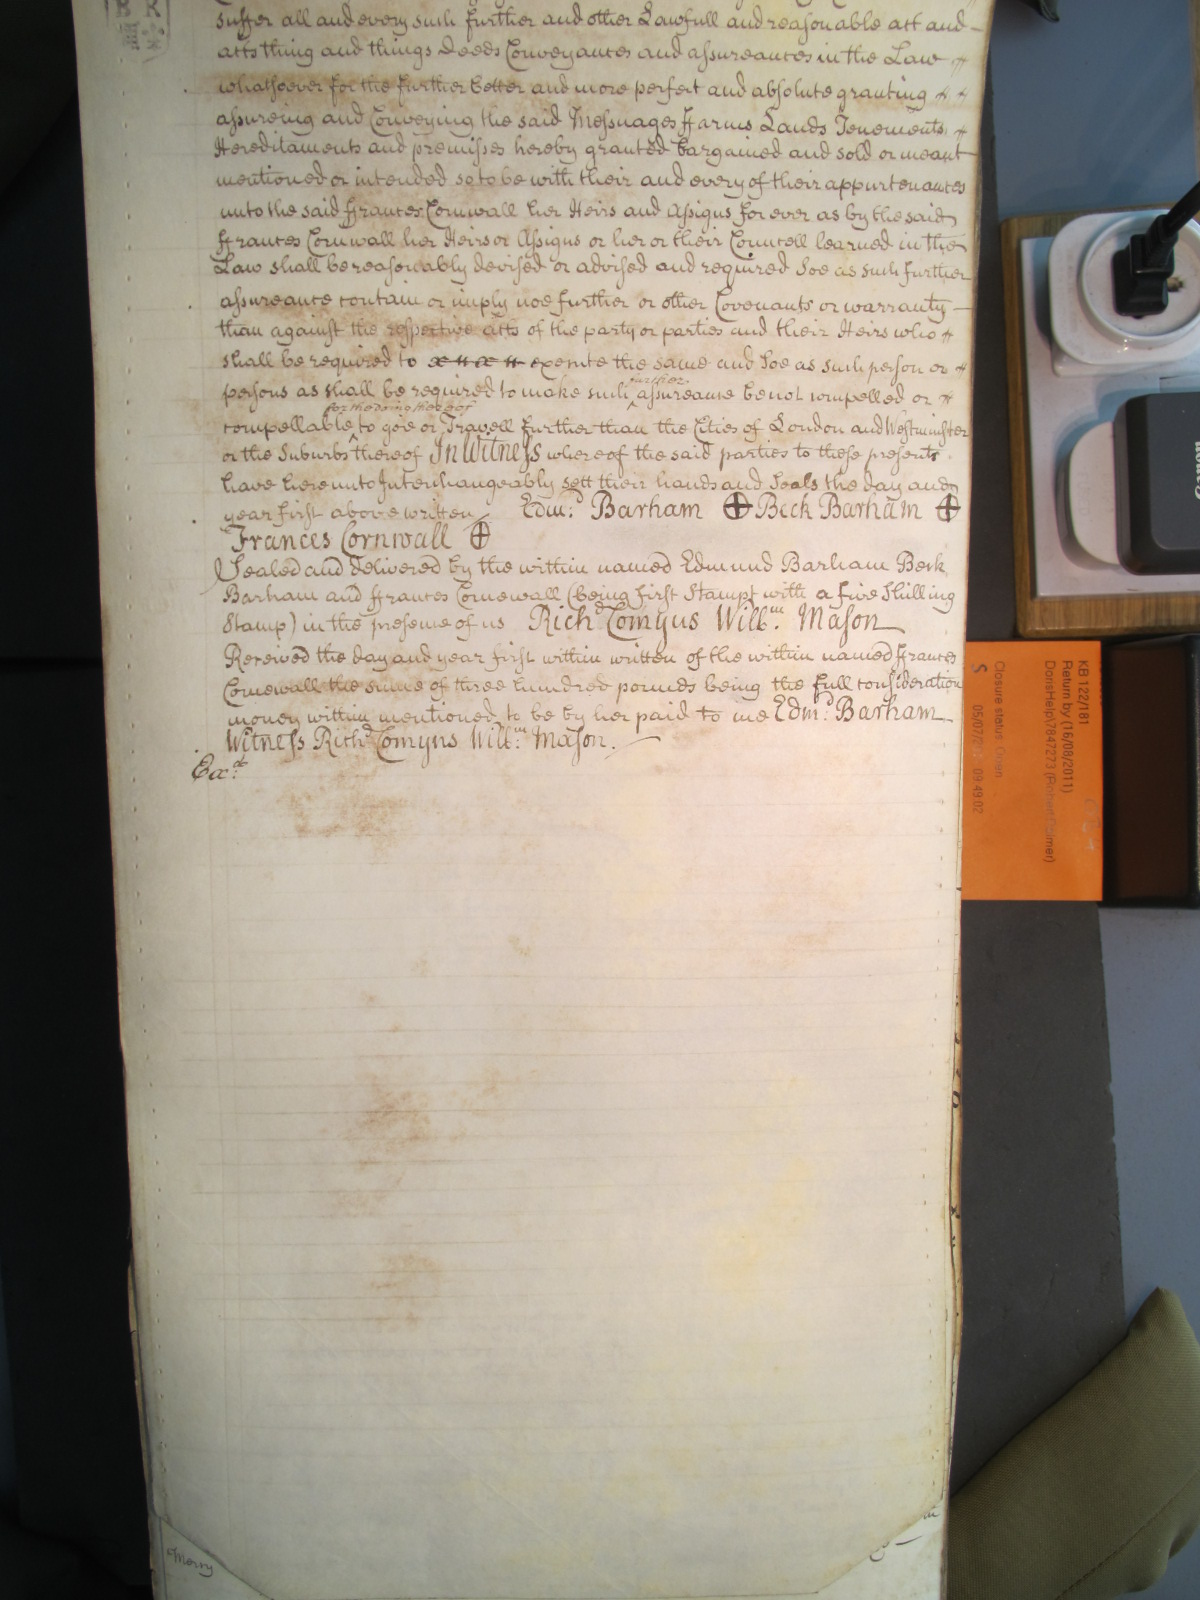 suffer all and every such further and other Lawfull and reasonable act and
acts thing and things Deeds Conveyances and assureances in the Law
whatsoever for the further better and more perfect and absolute granting
assureing and Conveying the said Messuages ffarms Lands Tenements
Hereditaments and premisses hereby granted bargained and sold or meant
mentioned or intended so to be with their and every of their appurtenances
unto the said ffrances Cornwall her Heirs and Assigns for ever as by the said
ffrances Cornwall her Heirs or Assigns or her or their Councell learned in the
Law shall be reasonably devised or advised and required Soe as such further
assureance contain or imply noe further or other Covenants or warranty
than against the respective acts of the party or parties and their Heirs who
shall be required to execute the same and Soe as such person or
persons as shall be required to make such further assureance be not compelled or
compellable for the doing thereof to goe or Travell further than the Cities of London and Westminster
or the Suburbs thereof In Witness whereof the said parties to these presents
have hereunto Interchangeably sett their hands and Seals the day and
year first above written Edm:d Barham Beck Barham
Frances Cornwall
Sealed and delivered by the within named Edmund Barham Beck
Barham and ffrances Cornewall (being first Stampt with a five Shilling
Stamp) in the presence of us Rich:d Comyns Will:m Mason
Received the day and year first within written of the within named ffrances
Cornewall the summe of three hundred pounds being the full consideration
money within mentioned to be by her paid to me Edm:d Barham
Witness Rich:d Comyns Will:m Mason.
Ex:d
Merry
B R
KB 122/181
Return by (16/08/2011)
Closure status: Open
S 05/07/ 09:49:02
Canon